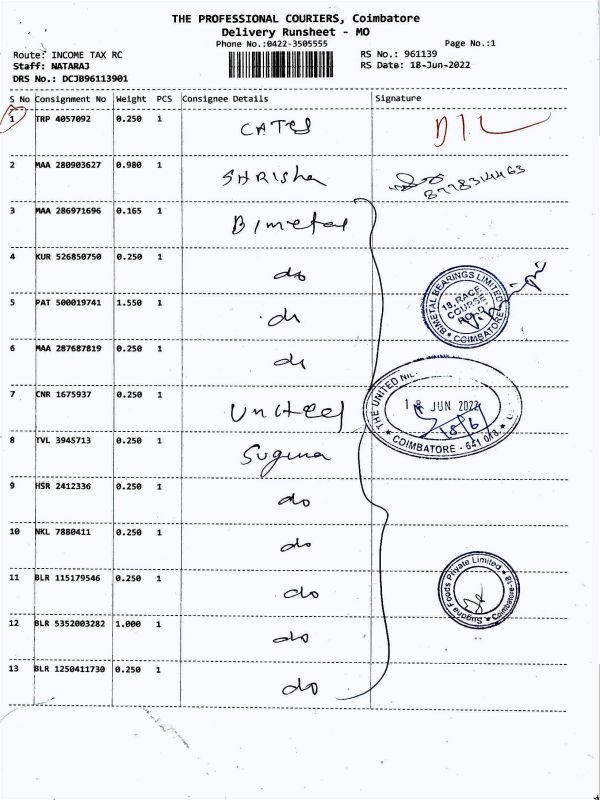 THE PROFESSIONAL COURIERS, Coimbatore
Delivery Runsheet - MO
Phone No.:0422-3505555
Page No.:1
Route: INCOME TAX RC
RS No.: 961139
Staff: NATARAJ
RS Date: 18-Jun-2022
DRS No.: DCJB96113901
S No Consignment No Weight PCS Consignee Details Signature
1 TRP 4057092 0.250 1 CATES
2 MAA 280903627 0.980 1 SHRISha
8778314463
3 MAA 286971696 0.165 1 Bimetal
4 KUR 526850750 0.250 1 do
BIMETAL BEARINGS LIMITED
18, RACE
COURSE
ROAD
* COIMBATORE *
5 PAT 500019741 1.550 1 do
6 MAA 287687819 0.250 1 do
7 CNR 1675937 0.250 1 United
THE UNITED NIL
18 JUN 2022
18/6
* COIMBATORE - 641 018. *
8 TVL 3945713 0.250 1 Suguna
9 HSR 2412336 0.250 1 do
10 NKL 7880411 0.250 1 do
11 BLR 115179546 0.250 1 do
Suguna Foods Private Limited
* Coimbatore-18 *
12 BLR 5352003282 1.000 1 do
13 BLR 1250411730 0.250 1 do